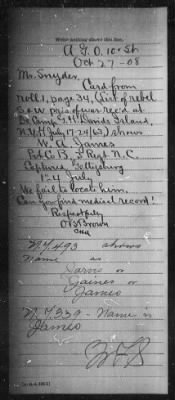 Write nothing above this line.
A.G.O. 10 Sh
Oct 27-08
Mr. Snyder,
Card from
roll 1, page 34, (list of rebel
s & w pris of war rec'd at
De Camp G.H. Davids Island,
N.Y.H July 17-24/63) shows
W. A. James
Pvt Co B, 5 Regt N.C.
Captured Gettysburg
1-4 July
We fail to locate him.
Can you find medical record?
Respectfully
Brown
N.Y. 493 shows
Name as
Jarvis or
Gaines or
James
N.Y. 339 - Name is
James